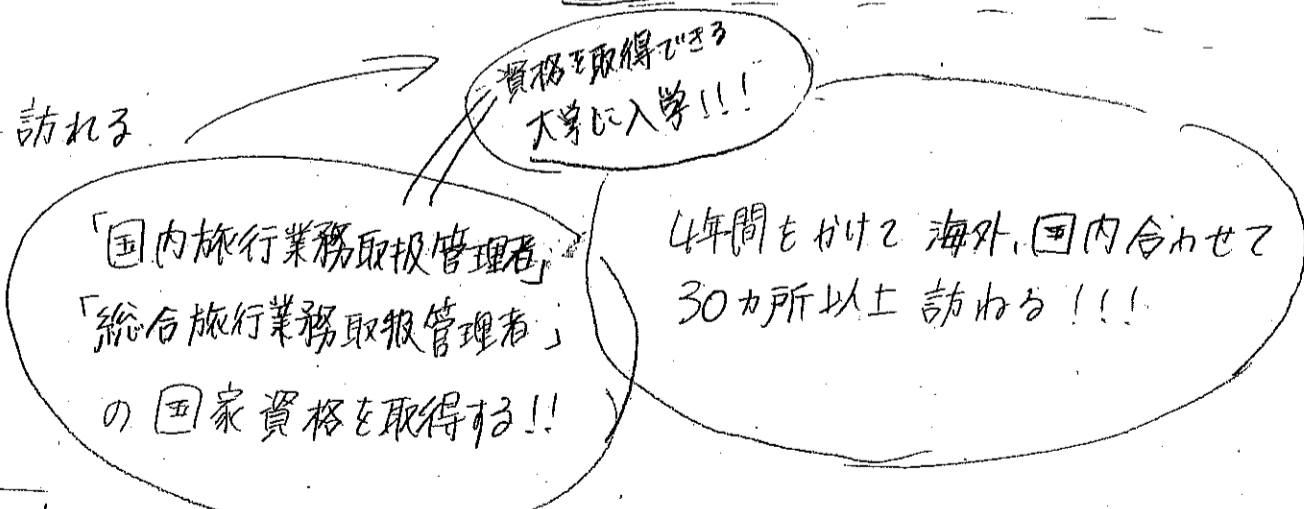 資格を取得できる
大学に入学!!!
訪れる
「国内旅行業務取扱管理者」
「総合旅行業務取扱管理者」
の国家資格を取得する!!
4年間をかけて海外、国内合わせて
30カ所以上訪ねる!!!